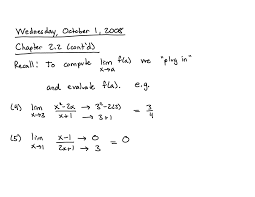 Wednesday, October 1, 2008
Chapter 2.2 (cont'd)
Recall: To compute lim x→a f(x) we "plug in"
and evaluate f(a). e.g.
(4) lim x→3 x²-2x / x+1 → 3²-2(3) / → 3+1 = 3/4
(5) lim x→1 x-1 / 2x+1 → 0 / → 3 = 0